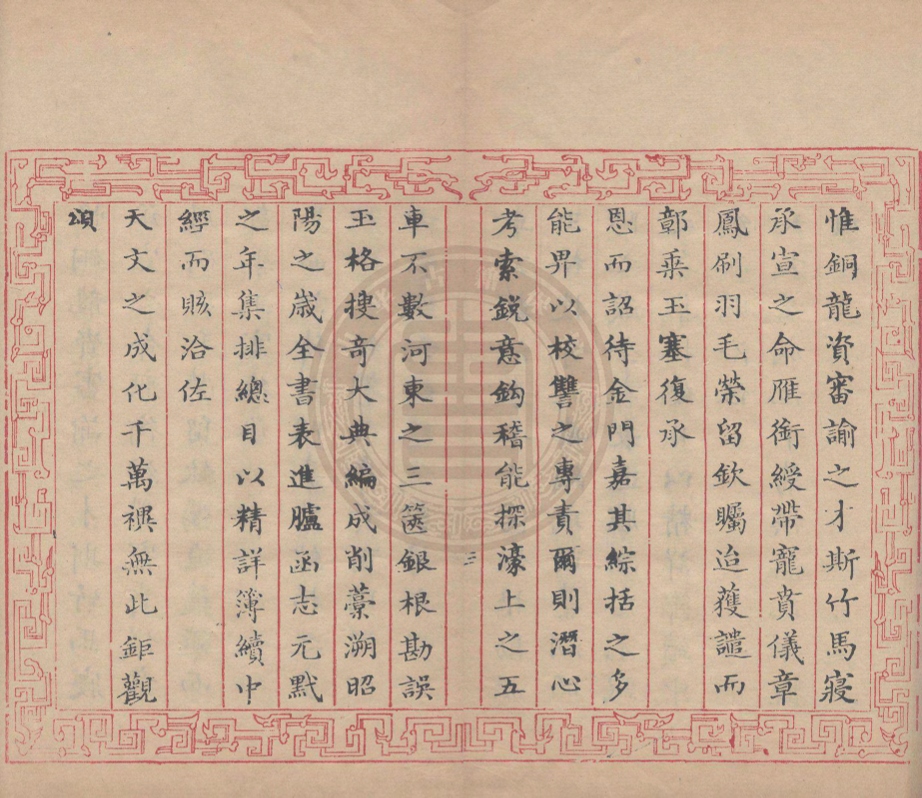 惟銅龍資審諭之才斯竹馬寢
承宣之命雁銜綬帶寵賁儀章
鳳刷羽毛榮留欽矚迨獲譴而
鄣乘玉塞復承
恩而詔待金門嘉其綜括之多
能畀以校讐之專責爾則潛心
考索銳意鈎稽能探濠上之五
三
車不數河東之三篋銀根勘誤
玉格搜奇大典編成削藁溯昭
陽之歲全書表進臚函志元默
之年集排總目以精詳簿續中
經而賅洽佐
天文之成化千萬禩無此鉅觀
頌